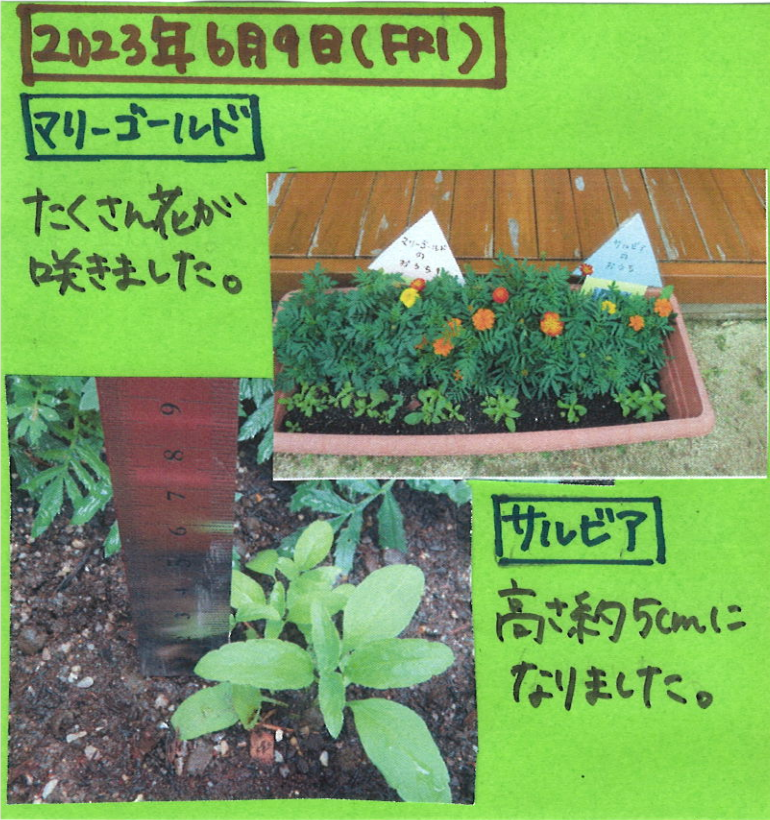 2023年6月9日(FRI)
マリーゴールド
たくさん花が
咲きました。
マリーゴールド
の
おうち
サルビア
の
おうち
9
8
7
6
5
4
3
サルビア
高さ約5cmに
なりました。